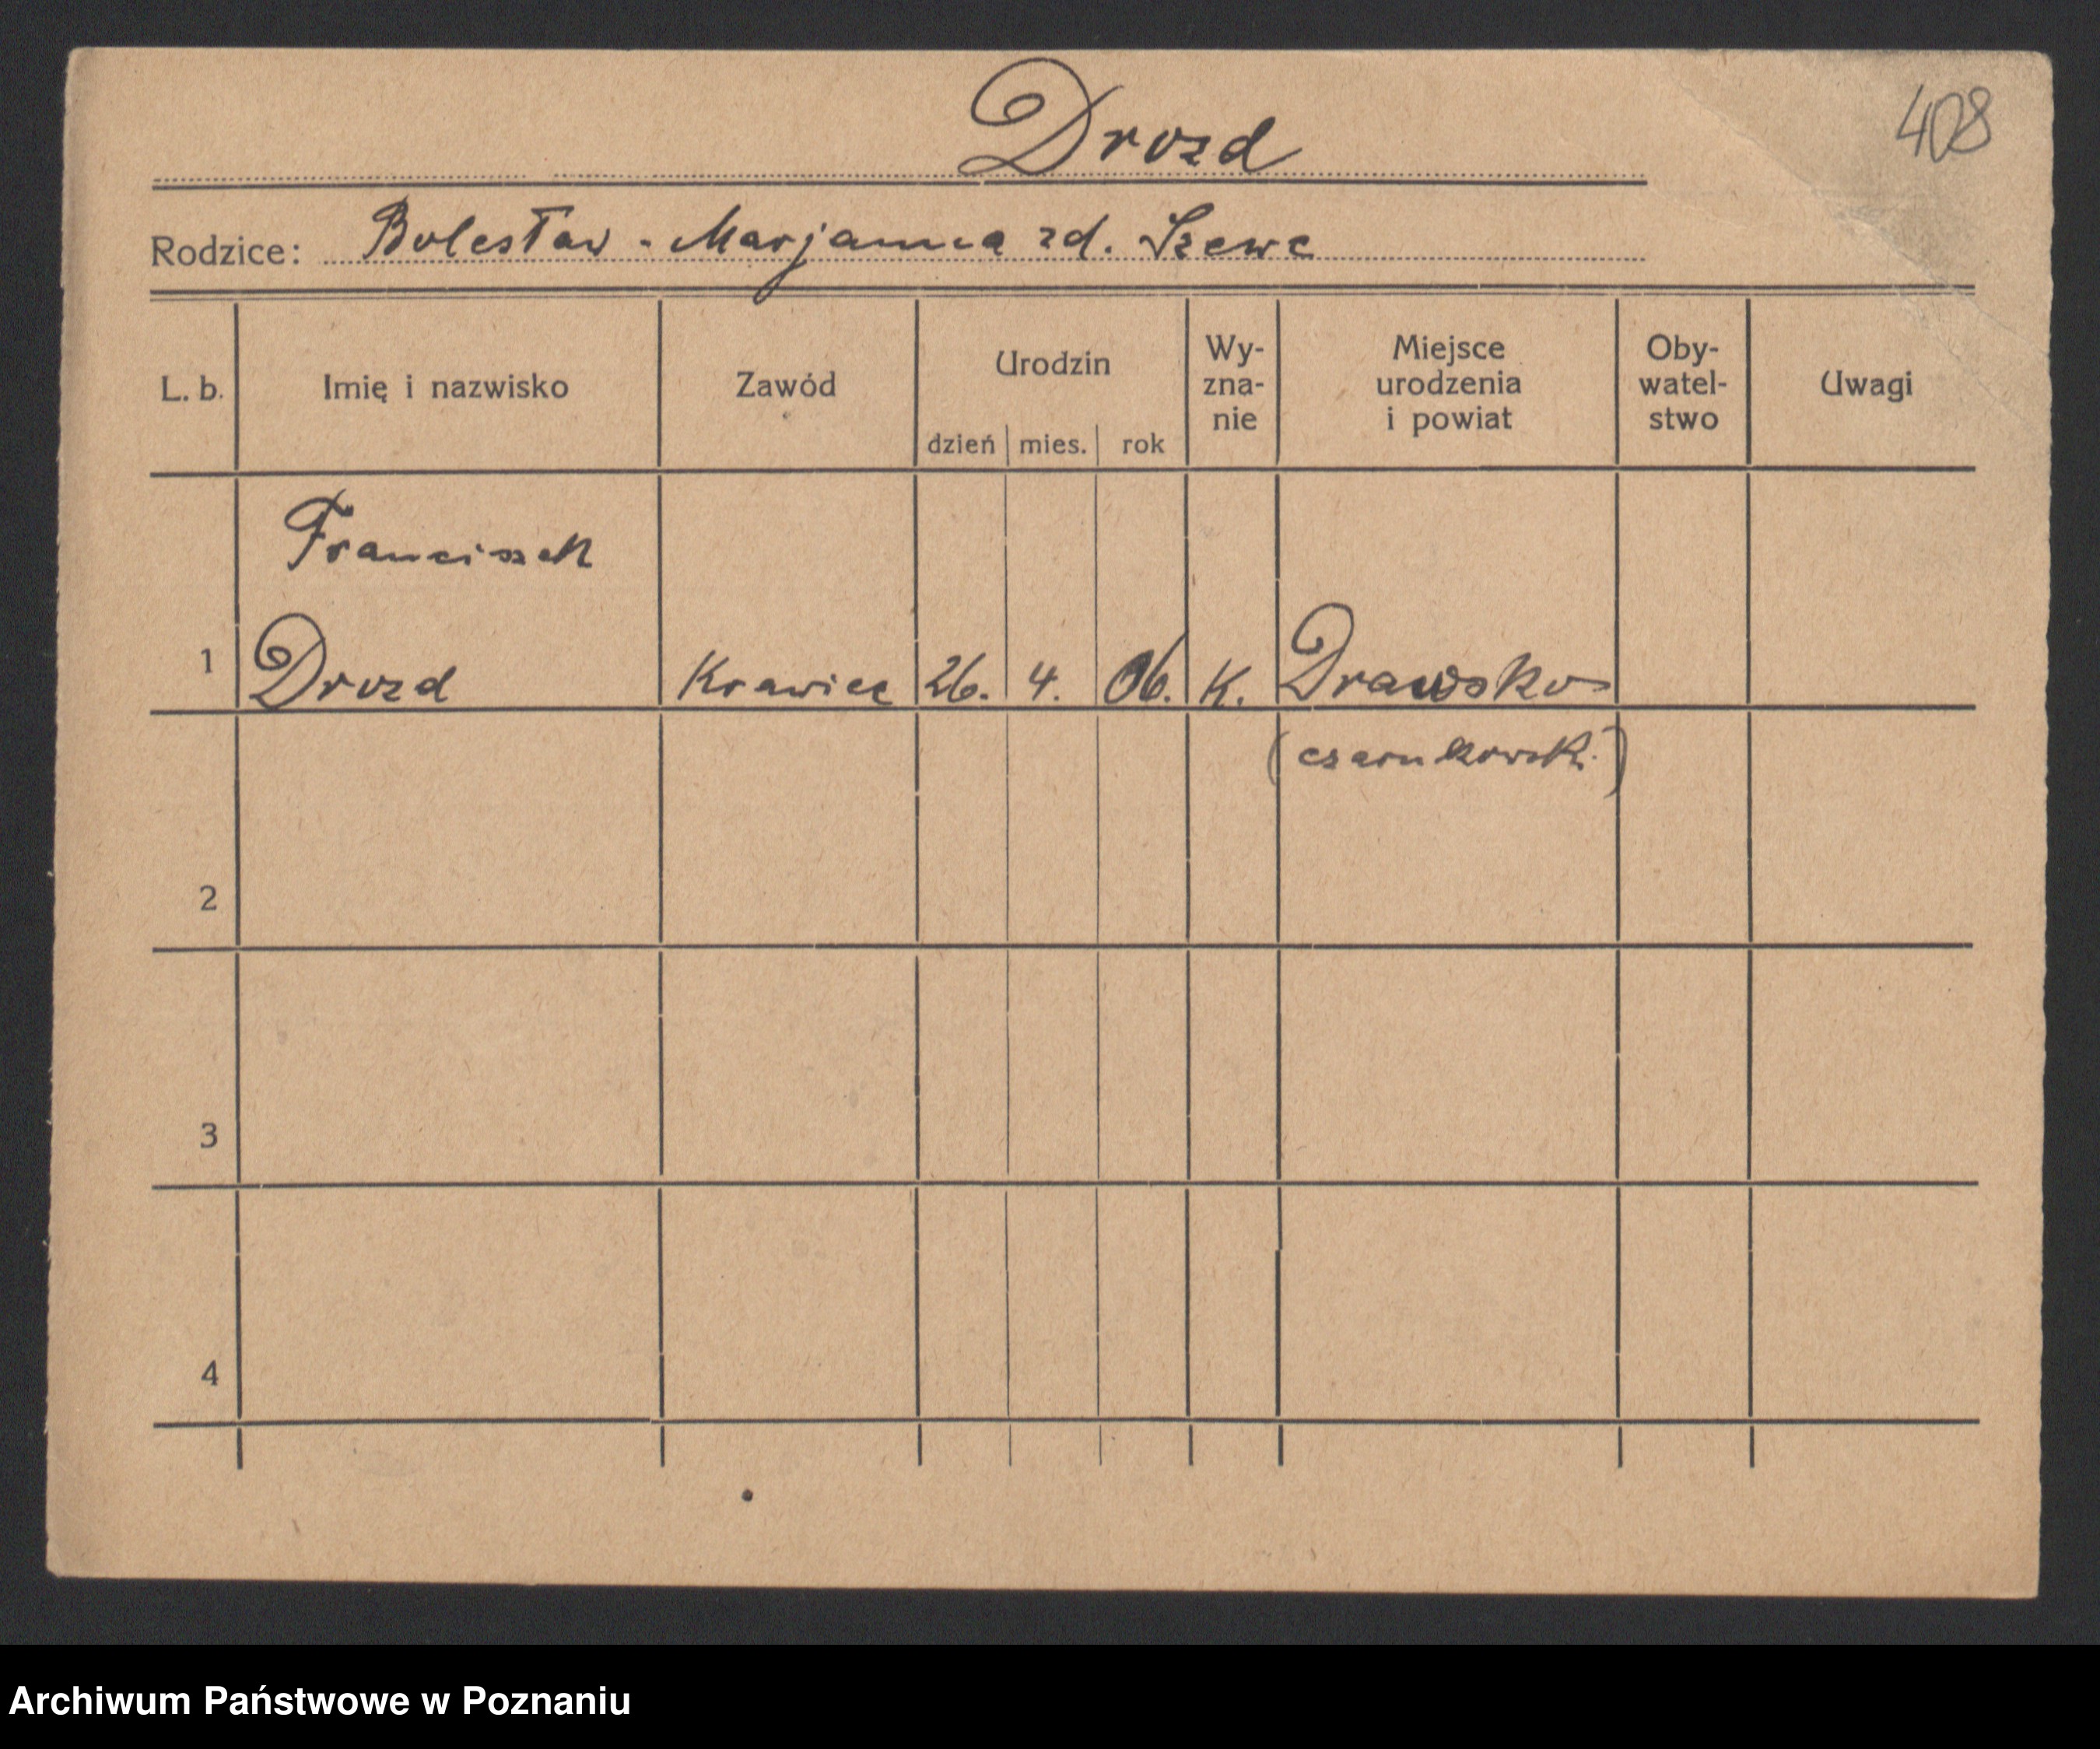 Drozd
408
Rodzice: Bolesław - Marjanna zd. Szewc
L. b. Imię i nazwisko Zawód Urodzin dzień mies. rok Wy-zna-nie Miejsce urodzenia i powiat Oby-watel-stwo Uwagi
Franciszek
1 Drozd Krawiec 26. 4. 06. K. Drawsko
(czarnkowski)
2
3
4
Archiwum Państwowe w Poznaniu